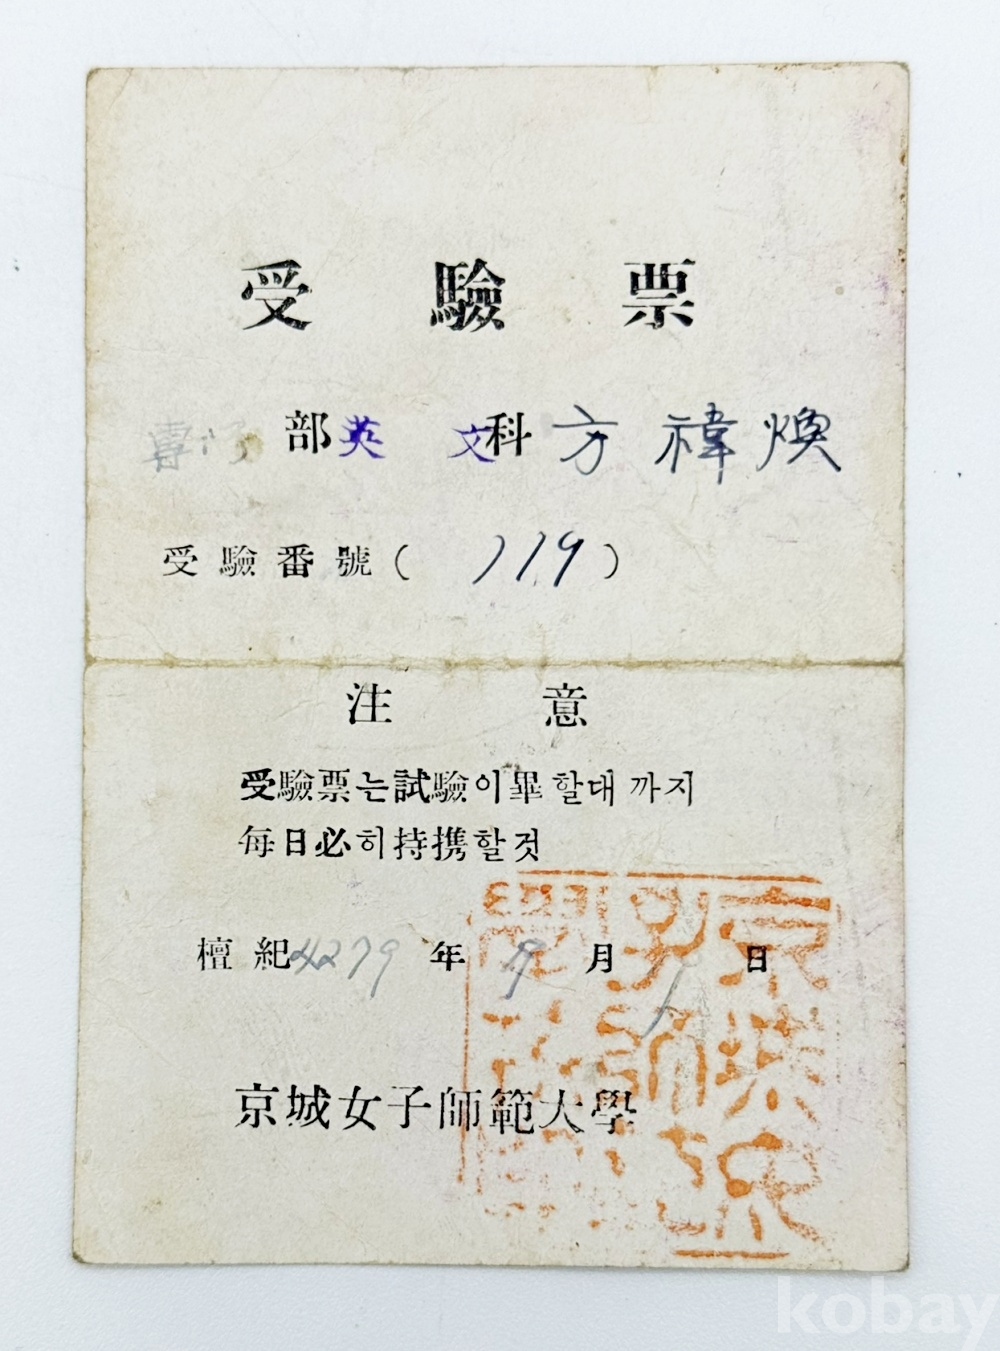 受驗票
專門部英文科 方禕煥
受驗番號( 119 )
注意
受驗票는試驗이畢할대까지
每日必히持携할것
檀紀4279年 9月 1日
京城女子師範大學
kobay